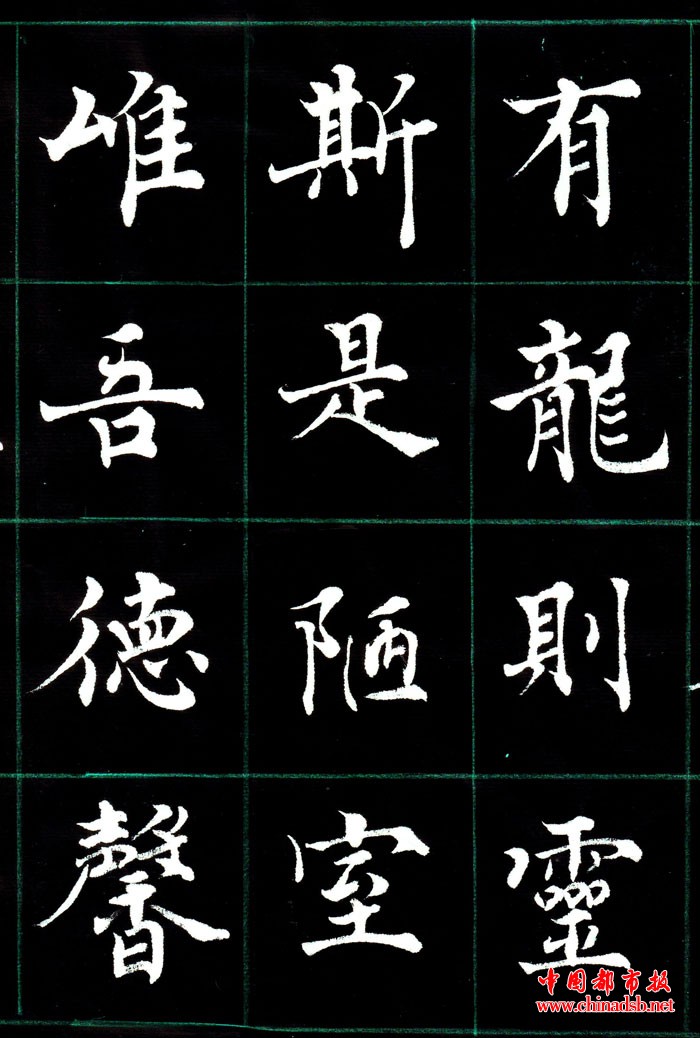 有龍則靈
斯是陋室
唯吾德馨
中国都市报
www.chinadsb.net